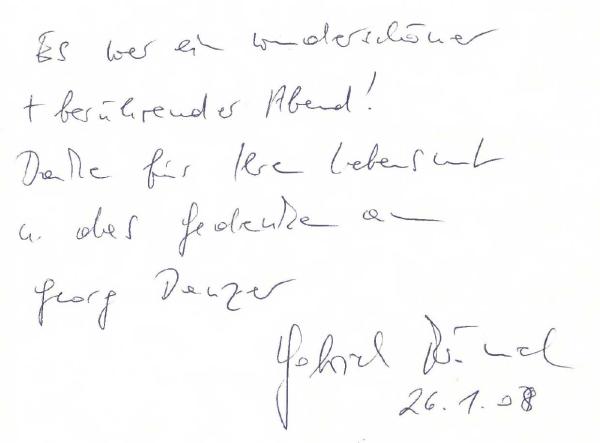 Es war ein wunderschöner
+ berührender Abend!
Danke für Ihre
u. das Gedenken an
Georg Denzer
26.1.08